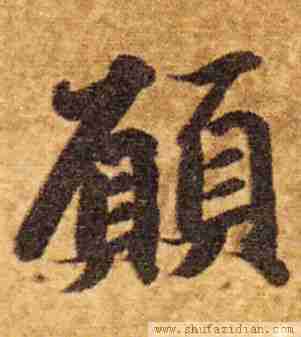 願
www.shufazidian.com